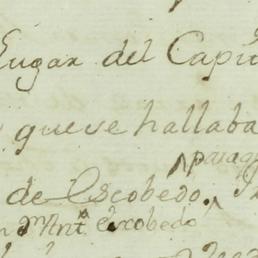 Lugar del Capi
queve hallaba
paraq
de Escobedo.
n Mnt.ª Escobedo